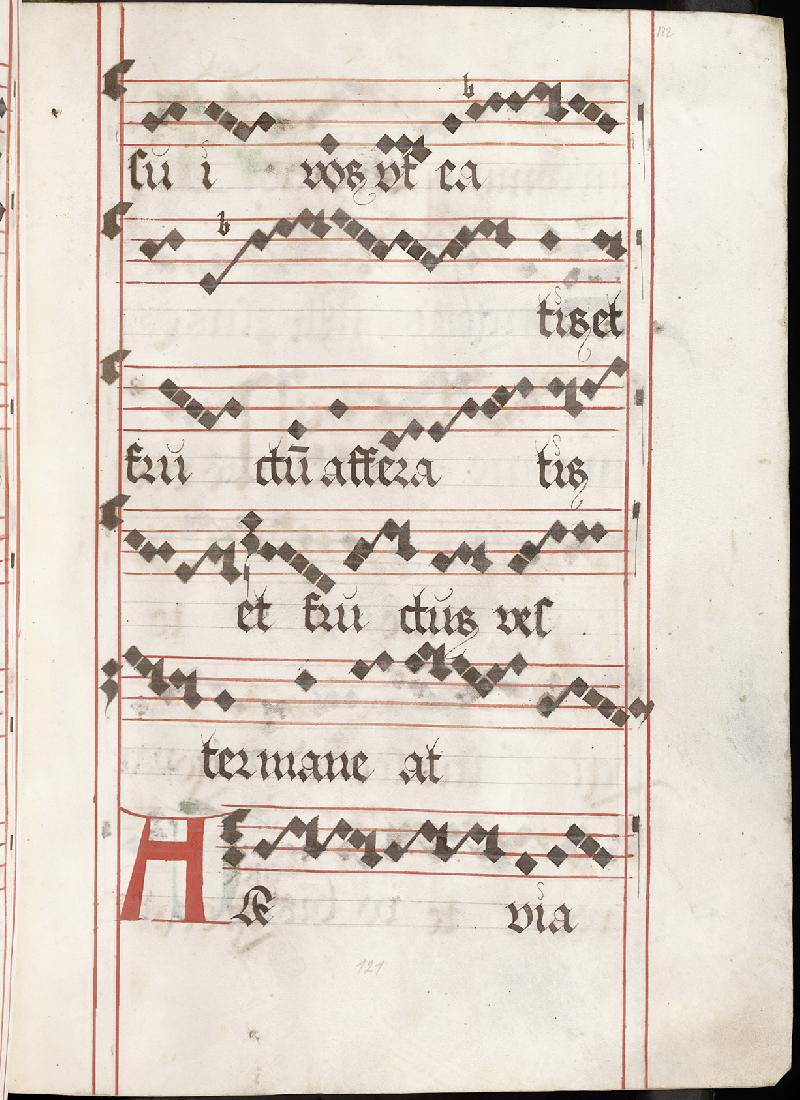 122
sui i vos ut ea
b
b
tis et
fru ctū affera tis
et fru ctus ves
ter mane at
A lle via
121